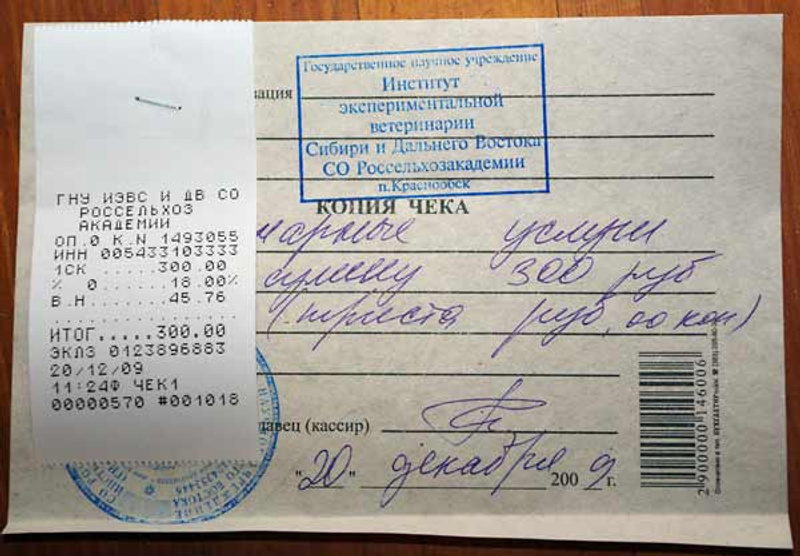 Государственное научное учреждение
Институт
экспериментальной
ветеринарии
Сибири и Дальнего Востока
СО Россельхозакадемии
п.Краснообск
зация
КОПИЯ ЧЕКА
нарные услуги
сумму 300 руб
(триста руб, 00 коп)
давец (кассир)
"20" декабря 2009 г.
2 900000 146006
ГНУ ИЭВС И ДВ СО
РОССЕЛЬХОЗ
АКАДЕМИИ
ОП.0 К.N 1493055
ИНН 005433103333
1СК ......300.00
% 0.......18.00%
В.Н.......45.76
ИТОГ.....300.00
ЭКЛЗ 0123896883
20/12/09
11:24Ф ЧЕК1
00000570 #001018